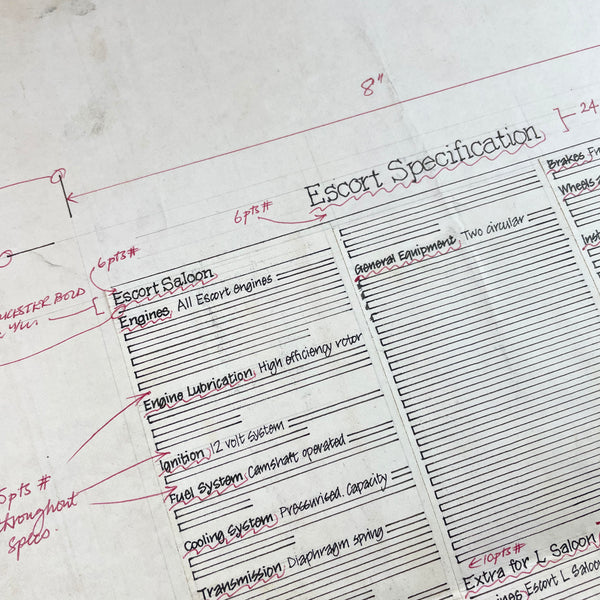 8"
24
Escort Specification
6pts #
6pts #
Escort Saloon
BOLD
Engines, All Escort engines
Engine Lubrication, High efficiency rotor
Ignition, 12 volt system
Fuel System, Camshaft operated
Cooling System, Pressurised. Capacity
Transmission, Diaphragm spring
5pts #
throughout
specs.
General Equipment, Two circular
←10pts #
Extra for L Saloon
Escort L Saloon
Brakes
Wheels